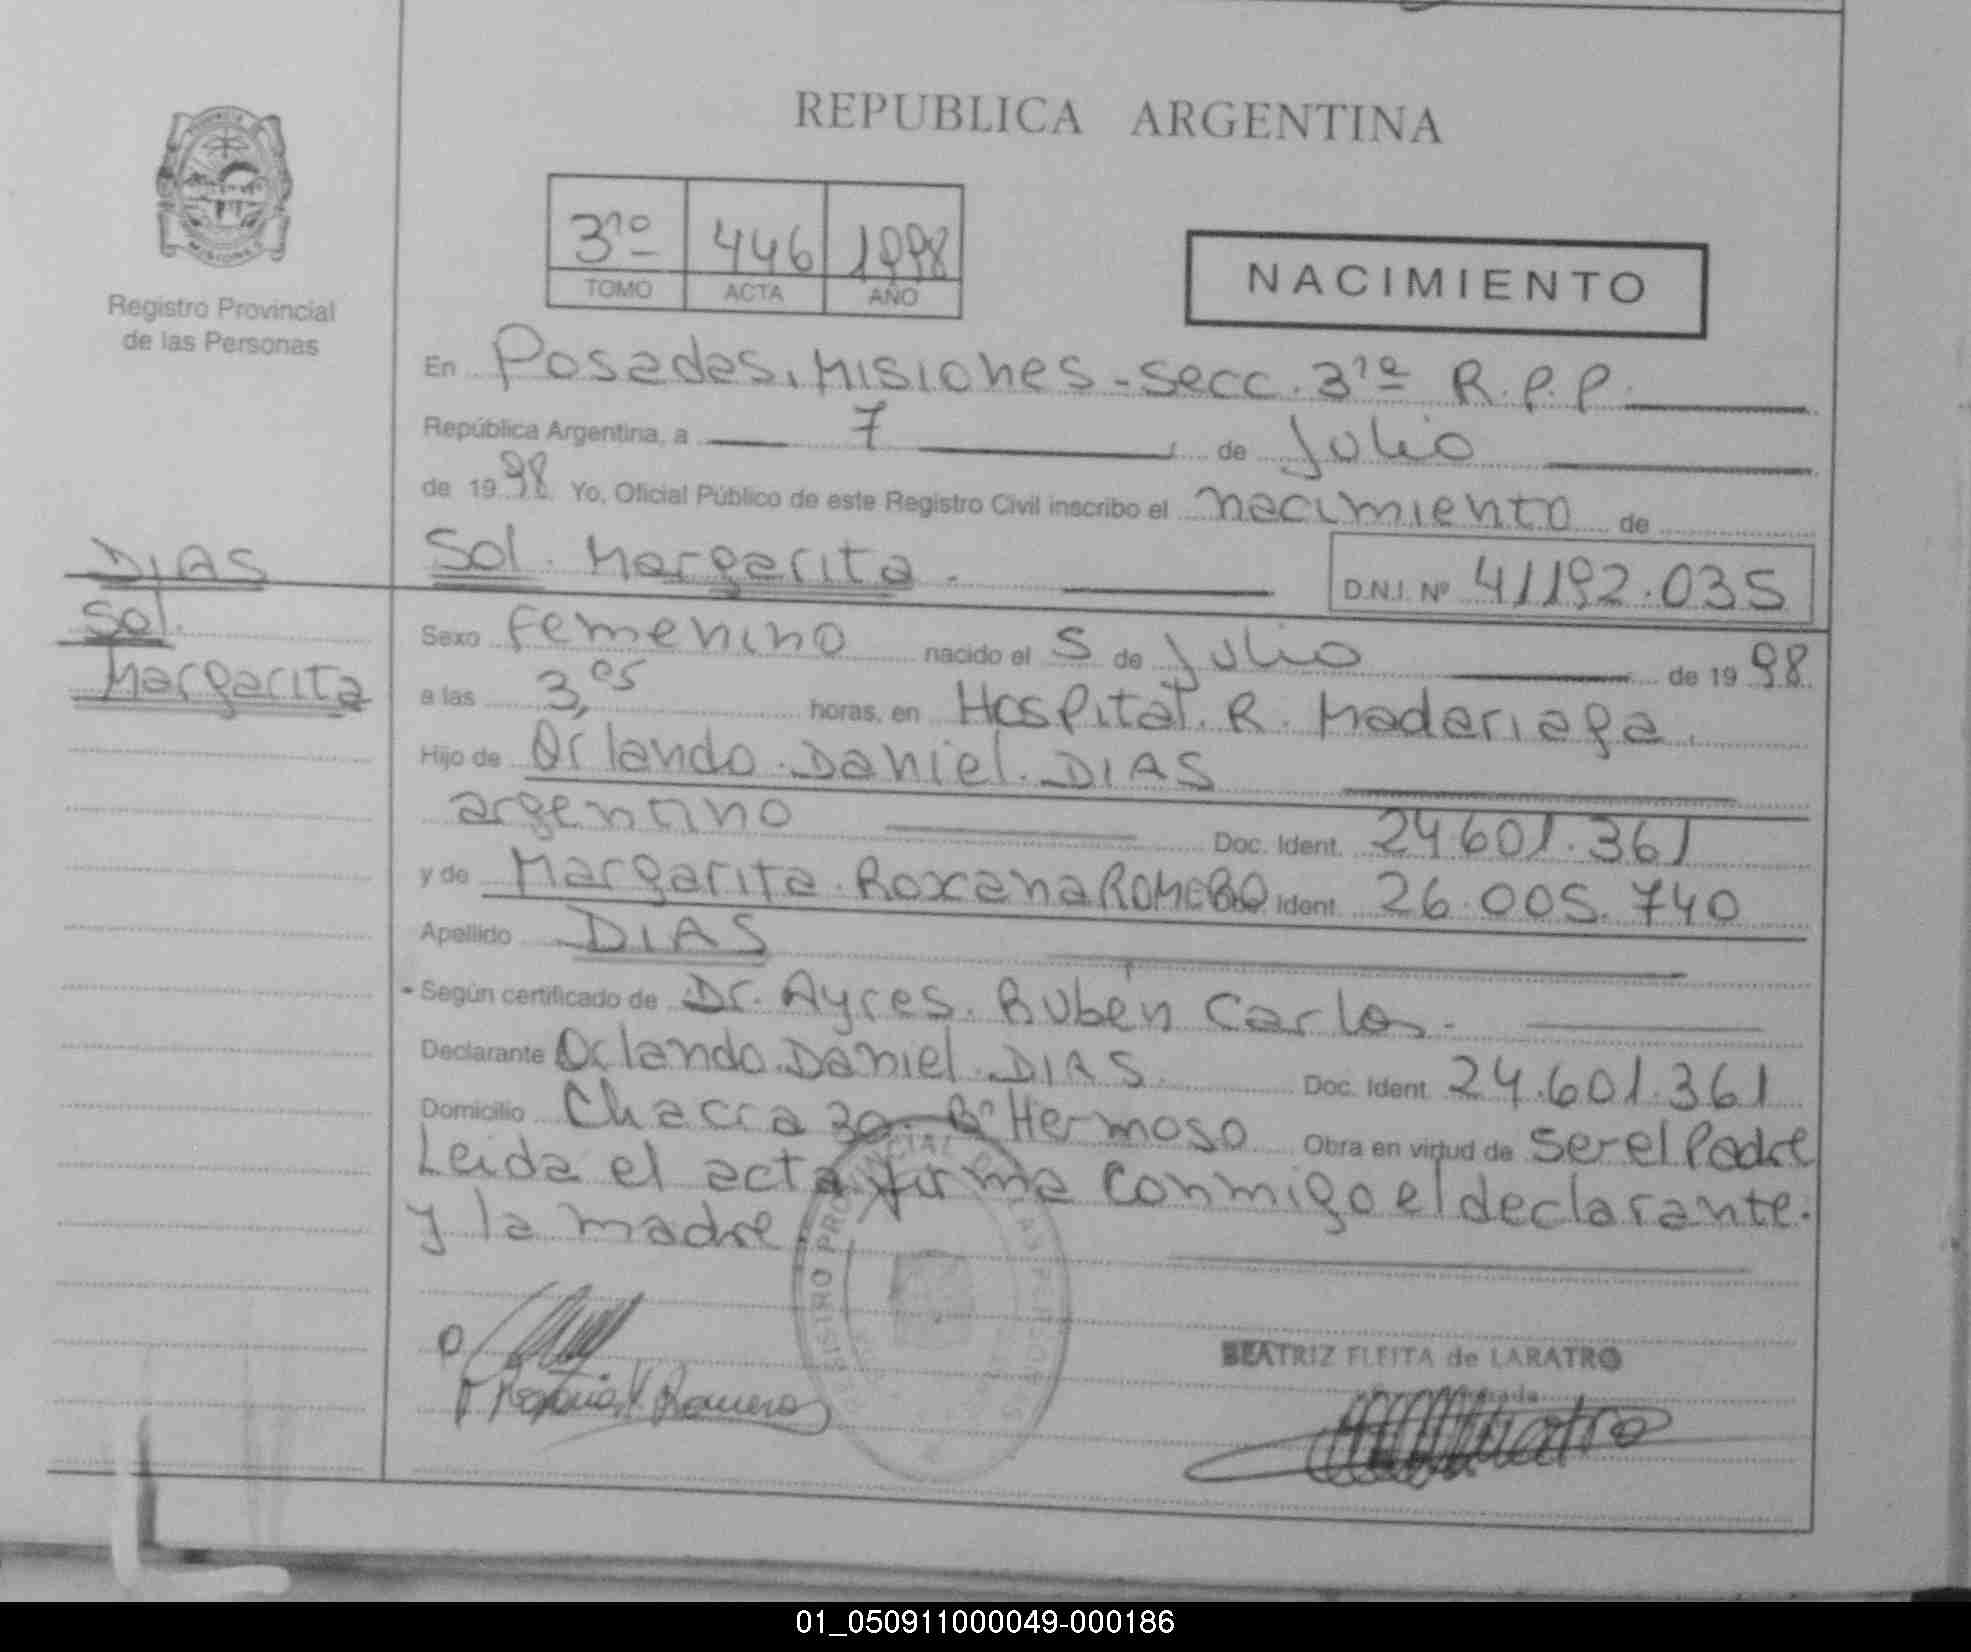 REPUBLICA ARGENTINA
3ro 446 1998
TOMO ACTA AÑO
NACIMIENTO
MISIONES
Registro Provincial
de las Personas
En Posadas, Misiones - secc. 3ra R.P.P.
República Argentina, a 7 de Julio
de 1998 Yo, Oficial Público de este Registro Civil inscribo el nacimiento de
DIAS
Sol
Margarita
Sol Margarita.
D.N.I. Nº 41192.035
Sexo femenino nacido el 5 de Julio de 1998.
a las 3,05 horas, en Hospital R. Madariaga.
Hijo de Orlando Daniel DIAS
argentino Doc. Ident. 24.601.361
y de Margarita Roxana ROMERO Ident. 26.005.740
Apellido DIAS
Según certificado de Dr. Ayres Rubén Carlos.
Declarante Orlando Daniel DIAS Doc. Ident. 24.601.361
Domicilio Chacra 30 - Bº Hermoso Obra en virtud de ser el Padre
Leida el acta firma conmigo el declarante.
y la madre.
REGISTRO PROVINCIAL DE LAS PERSONAS
BEATRIZ FLEITA de LARATRO
Romero
01_050911000049-000186